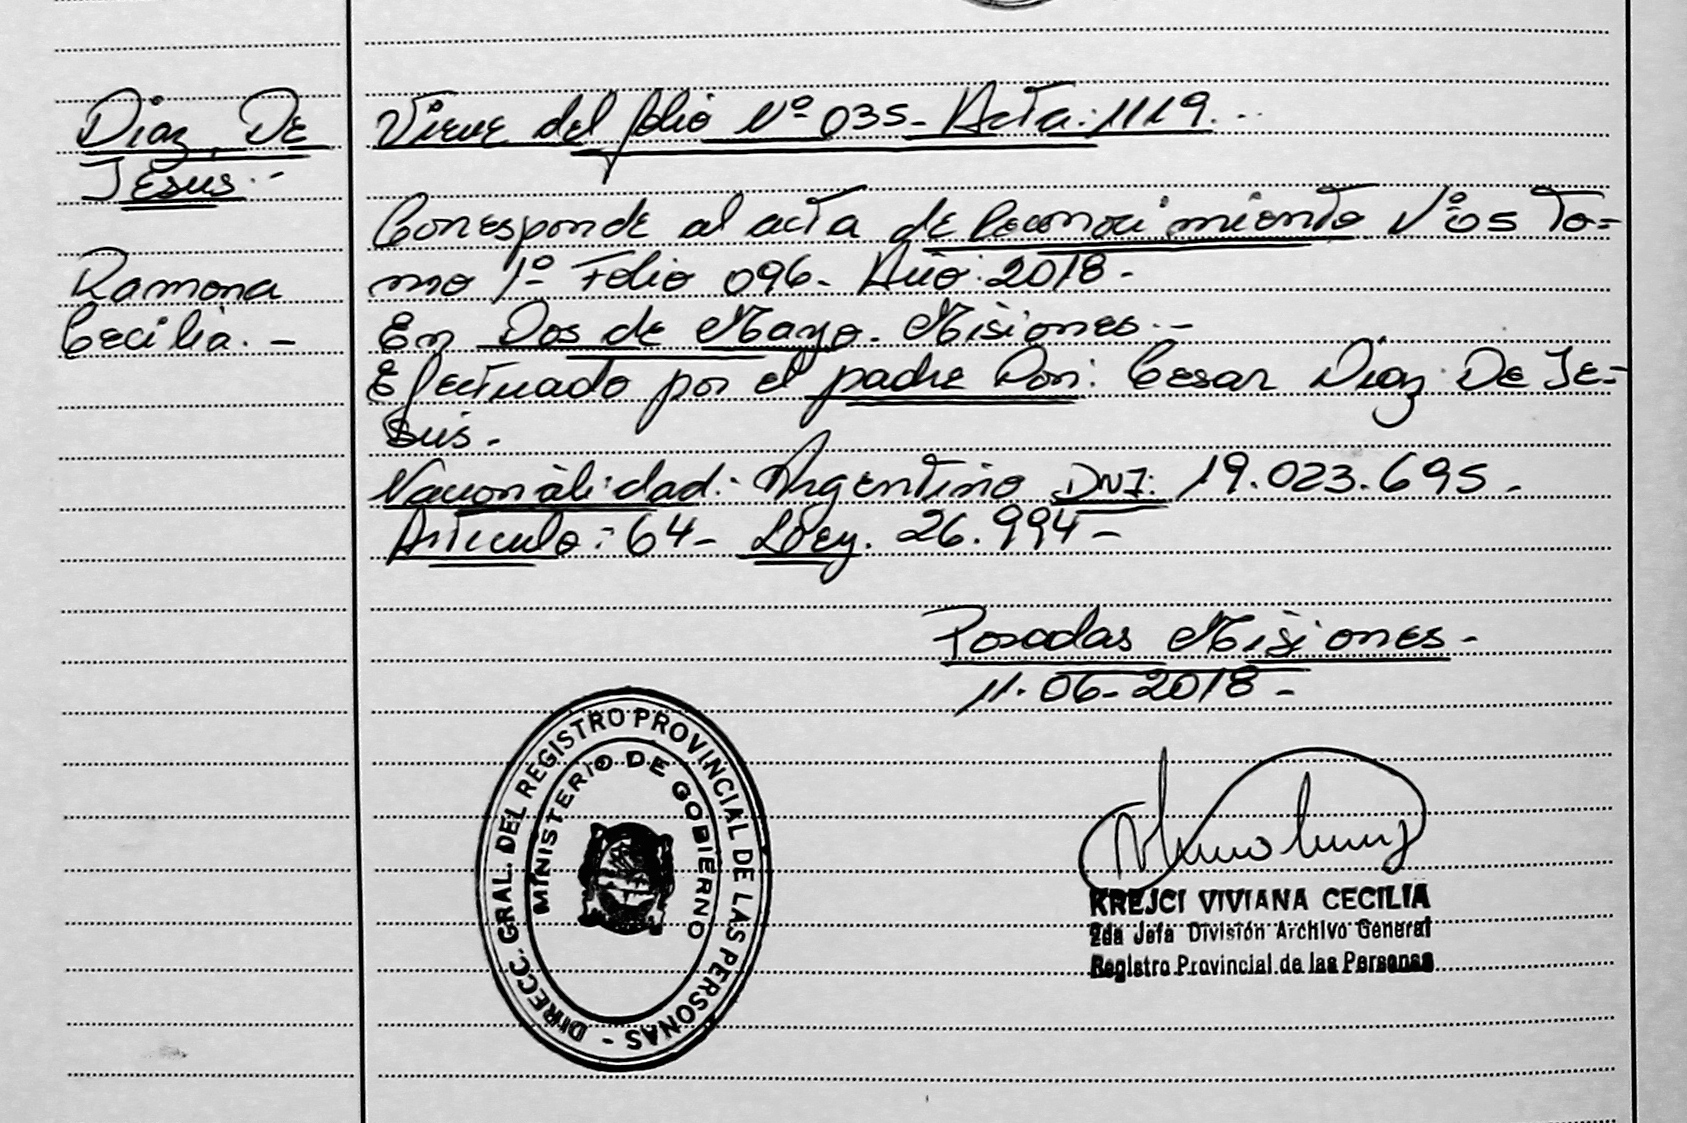 Diaz, De
Jesus.-
Ramona
Cecilia. -
Viene del folio Nº 035- Acta: 1119...
Corresponde al acta de Reconocimiento Nº 05 To-
mo 1º Folio 096- Año: 2018-
En Dos de Mayo. Misiones.-
Efectuado por el padre Don: Cesar Diaz De Je-
sus.
Nacionalidad: Argentino DNI: 19.023.695.
Articulo: 64- Ley. 26.994-
Posadas Misiones-
11.06-2018-
DIRECC. GRAL. DEL REGISTRO PROVINCIAL DE LAS PERSONAS -
MINISTERIO DE GOBIERNO
KREJCI VIVIANA CECILIA
2da Jefa División Archivo General
Registro Provincial de las Personas